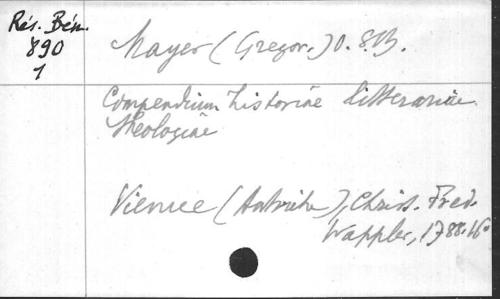 Rés. Bén.
890
1
Mayer (Gregor.) O.S.B.
Compendium historiae litterariae
theologiae
Vienne (Autriche), Christ. Fred.
Wappler, 1788. 16°